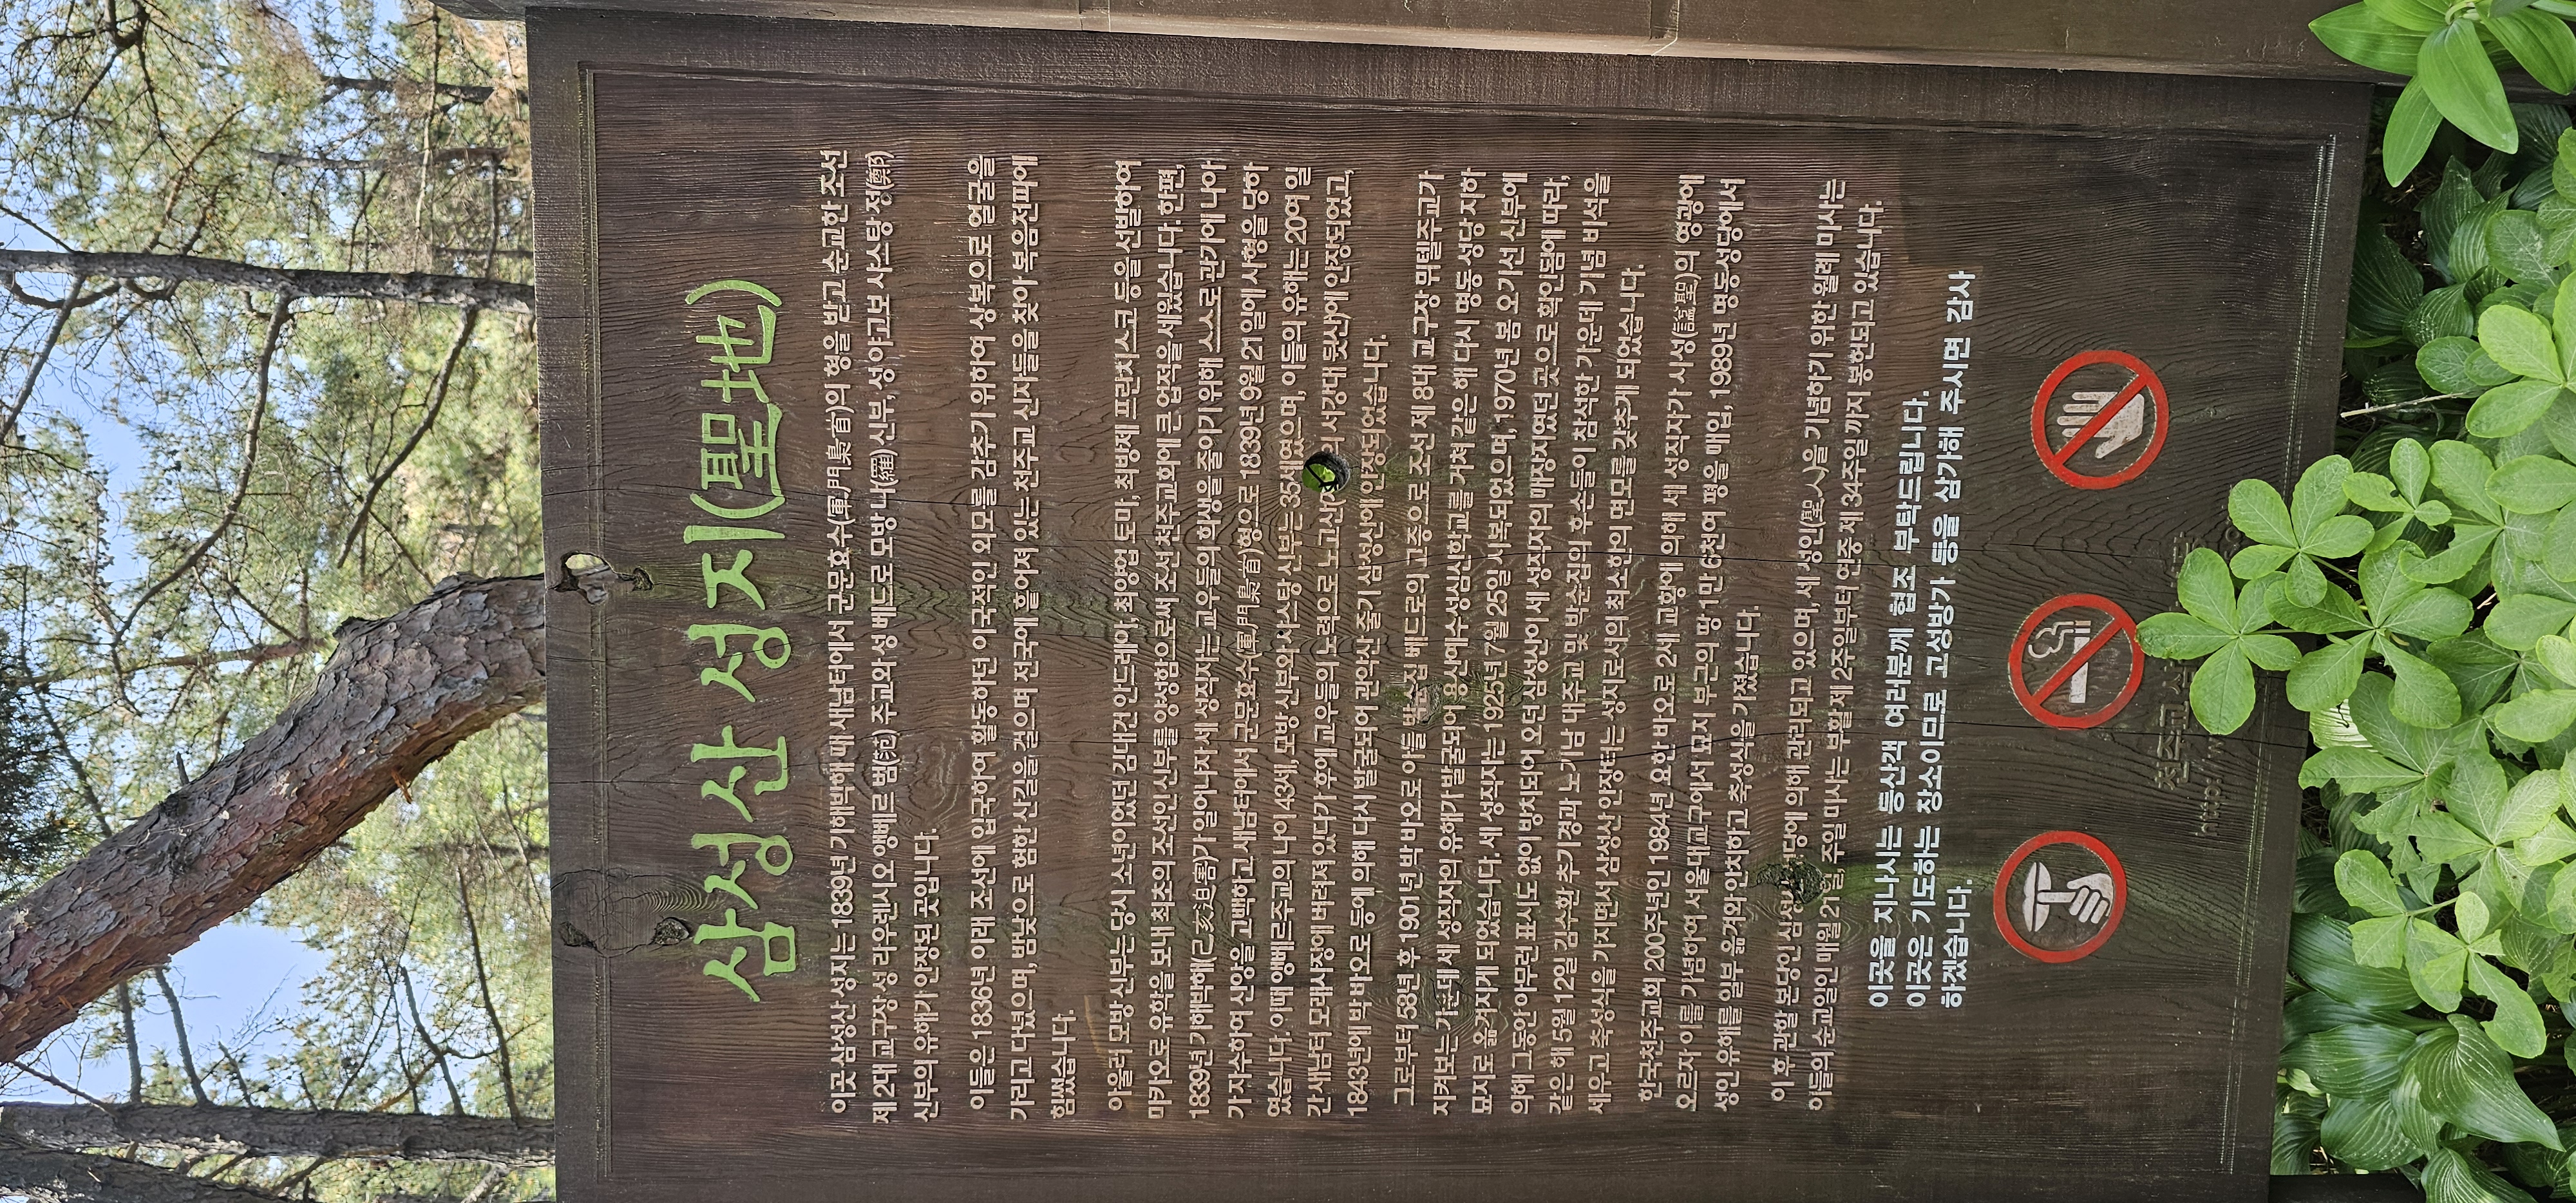 삼성산 성지(聖地)
이곳 삼성산 성지는 1839년 기해박해 때 새남터에서 군문효수(軍門梟首)의 형을 받고 순교한 조선
제 2대 교구장 성 라우렌시오 앵베르 범(范) 주교와 성 베드로 모방 나(羅) 신부, 성 야고보 샤스탕 정(鄭)
신부의 유해가 안장된 곳입니다.
이들은 1836년 이래 조선에 입국하여 활동하던 이국적인 외모를 감추기 위하여 상복으로 얼굴을
가리고 다녔으며, 밤낮으로 험한 산길을 걸으며 전국에 흩어져 있는 천주교 신자들을 찾아 복음전파에
힘썼습니다.
아울러 모방 신부는 당시 소년이었던 김대건 안드레아, 최양업 토마, 최방제 프란치스코 등을 선발하여
마카오로 유학을 보내 최초의 조선인 신부를 양성함으로써 조선 천주교회에 큰 업적을 세웠습니다. 한편,
1839년 기해박해(己亥迫害)가 일어나자 세 성직자는 교우들의 희생을 줄이기 위해 스스로 관가에 나아
가 자수하여 신앙을 고백하고 새남터에서 군문효수(軍門梟首)형으로 1839년 9월 21일에 사형을 당하
였습니다. 이때 앵베르 주교의 나이 43세, 모방 신부와 샤스탕 신부는 35세였으며, 이들의 유해는 20여 일
간 새남터 모래사장에 버려져 있다가 후에 교우들의 노력으로 노고산( 서강대 뒷산)에 안장되었고,
1843년에 박 바오로 등에 의해 다시 발굴되어 관악산 줄기 삼성산에 안장되었습니다.
그로부터 58년 후 1901년 박 바오로 아들 박순집 베드로의 고증으로 조선 제 8대 교구장 뮈텔주교가
지켜보는 가운데 세 성직자의 유해가 발굴되어 용산예수성심신학교를 거쳐 같은 해 다시 명동 성당 지하
묘지로 옮겨지게 되었습니다. 세 성직자는 1925년 7월 25일 시복되었으며, 1970년 봄 오기선 신부에
의해 그동안 아무런 표시도 없이 방치되어 오던 삼성산이 세 성직자의 매장지였던 곳으로 확인됨에 따라,
같은 해 5월 12일 김수환 추기경과 노기남 대주교 및 박순집의 후손들이 참석한 가운데 기념 비석을
세우고 축성식을 가지면서 삼성산 안장터는 성지로서의 최소한의 면모를 갖추게 되었습니다.
한국천주교회 200주년인 1984년 요한 바오로 2세 교황에 의해 세 성직자가 시성(諡聖)의 영광에
오르자 이를 기념하여 서울대교구에서 묘지 부근의 땅 1만 6천여 평을 매입, 1989년 명동성당에서
성인 유해를 일부 옮겨와 안치하고 축성식을 가졌습니다.
이 후 관할 본당인 삼성산 성당에 의해 관리되고 있으며, 세 성인(聖人)을 기념하기 위한 월례 미사는
이들의 순교일인 매월 21일, 주일 미사는 부활 제 2주일부터 연중 제 34주일 까지 봉헌되고 있습니다.
이곳을 지나시는 등산객 여러분께 협조 부탁드립니다.
이곳은 기도하는 장소이므로 고성방가 등을 삼가해 주시면 감사
하겠습니다.
천주교
http://w